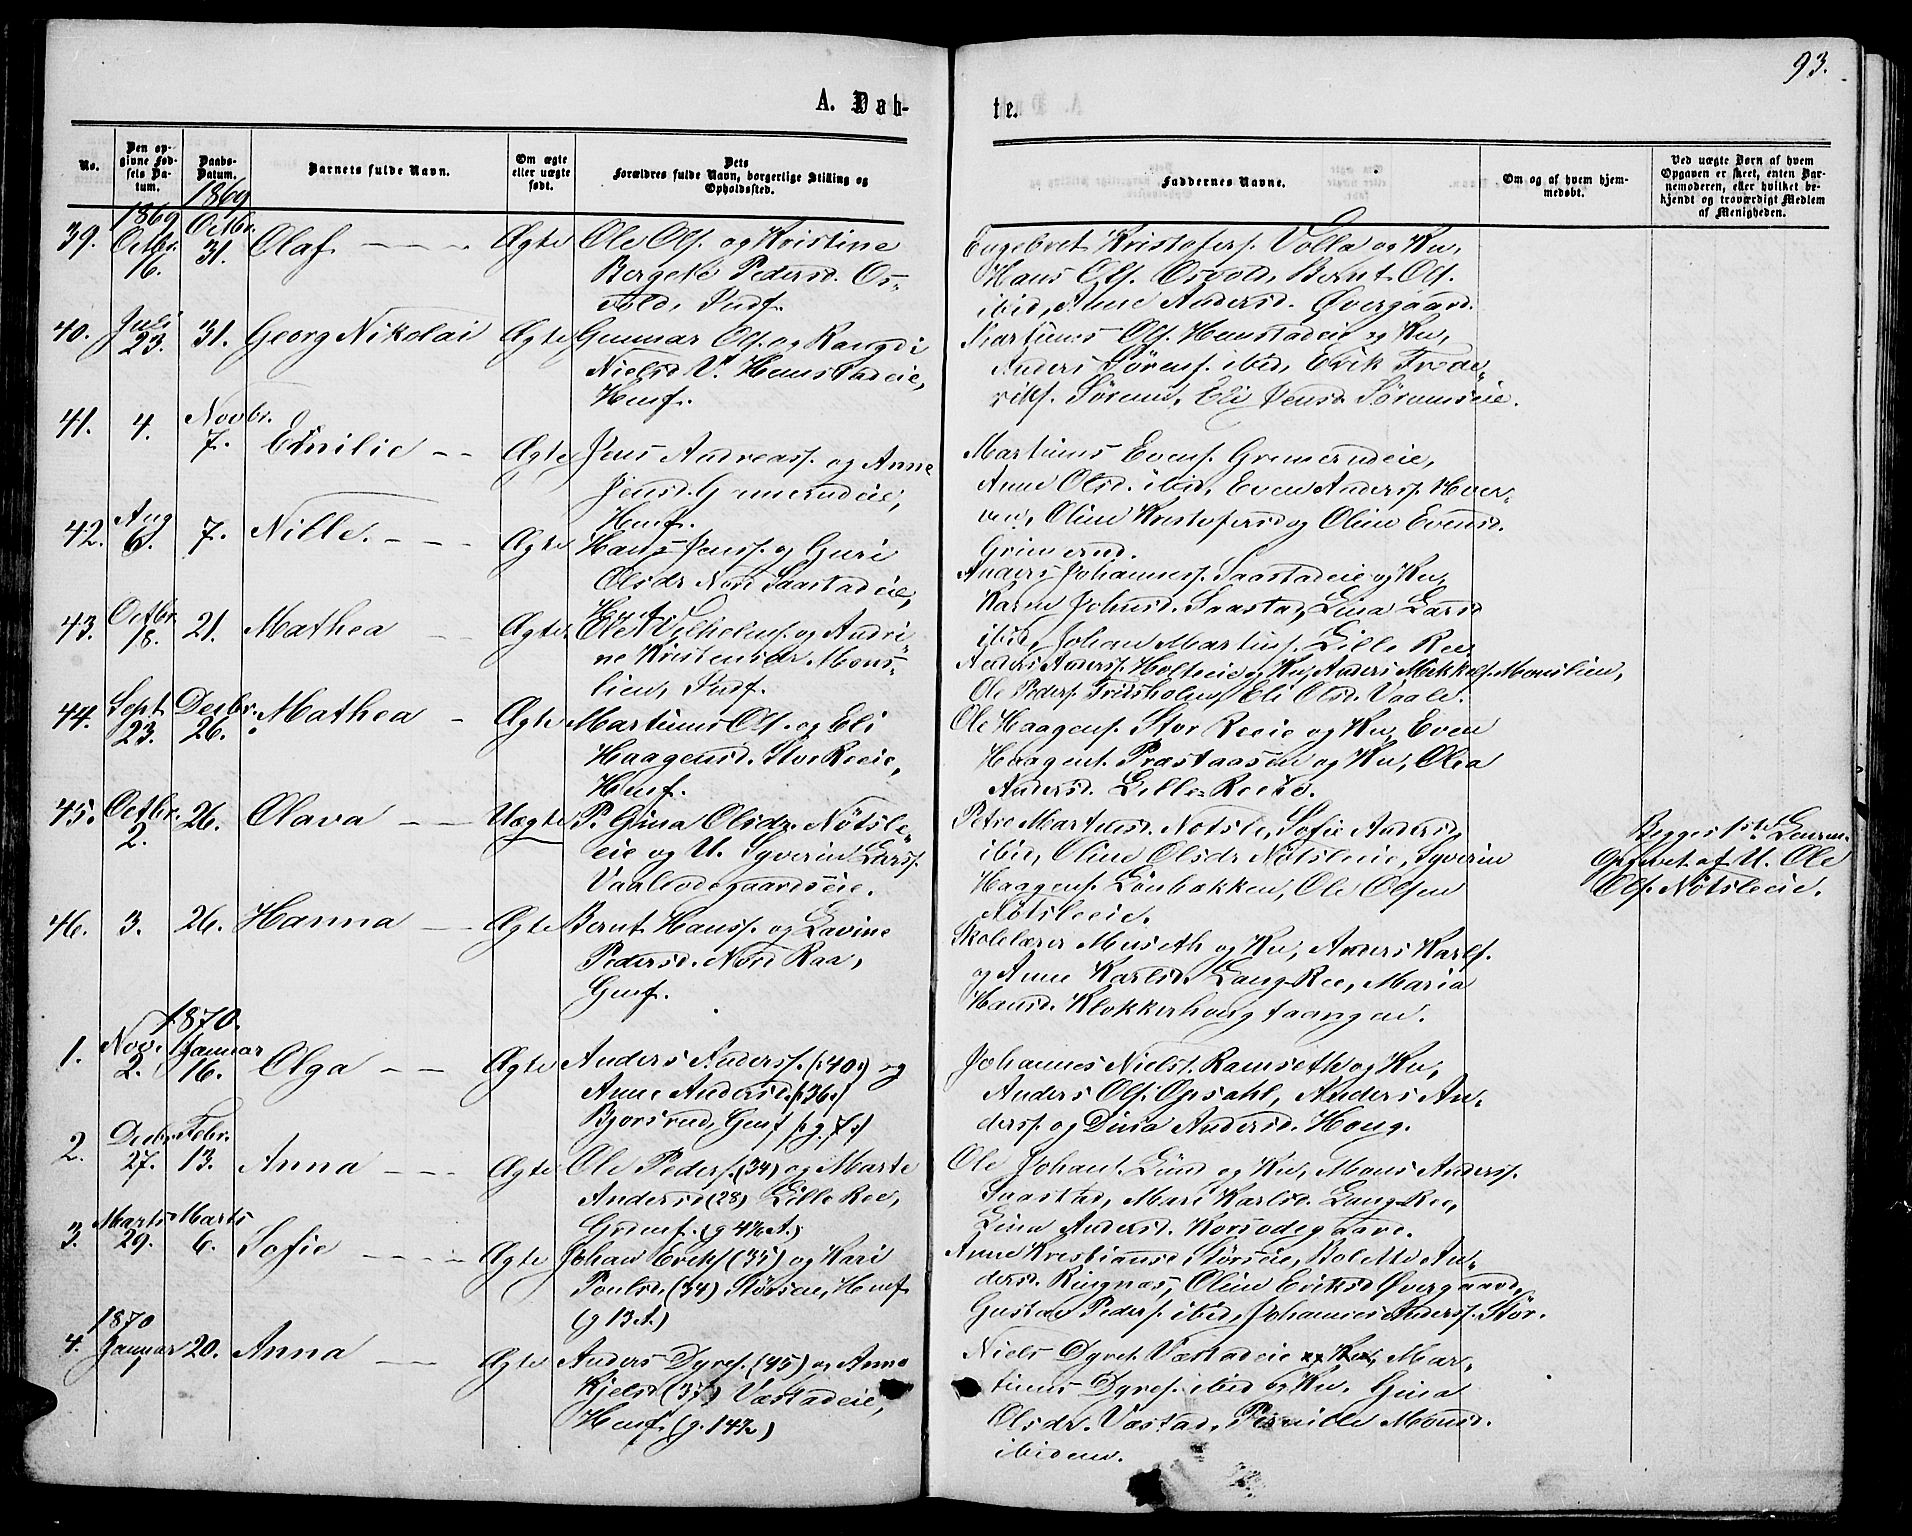 93.
A. Døb-
te.
No.
Den op-
givne Fød-
sels Da-
tum.
Daabs-
Datum.
Barnets fulde Navn.
Om ægte
eller uægte
født.
Dets
Forældres fulde Navn, borgerlige Stilling og
Opholdssted.
Faddernes Navne.
Om og af hvem hjem-
medøbt.
Ved uægte Børn af hvem
Opgaven er skeet, enten Bar-
nemoderen, eller hvilket be-
kjendt og troværdigt Medlem
af Menigheden.
1869 1869
39. Octbr. 16. Octbr. 31. Olaf Ægte Ole Ols. og Kristine
Pedersd. Os-
vold,
Engebret Kristofers. Volla og Ku,
Hans Ols. Osvold, Bernt Ols.
ibid, Anne Andersd. Øvergaard.
40. Juli 23. 31. Georg Nikolai Ægte Gunnar Ols. og Rangdi
Nielsd. V. Hemstadeie,
Husf.
Martinus Ols. Hemstadeie og Ku,
Anders Sørens. ibid, Erik Frede-
riks. Sørum, Eli Jensd. Sørumseie.
41. 4. Novbr. 7. Emilie Ægte Jens Andreass. og Anne
Jensd. Grimerudeie,
Husf.
Martinus Evens. Grimerudeie,
Anne Olsd. ibid, Even Anderss. Hver-
ven, Oline Kristofersd og Oline Evensd.
Grimerud.
42. Aug 6. 7. Nille. Ægte Hans Jenss. og Guri
Olsdr Nord Saastadeie,
Husf.
Anders Johanness. Saastadeie og Ku,
Karen Johnsd. Saastad, Lina Larsd
ibid, Johan Martins. Lille Ree
43. Octbr. 18. 21. Mathea Ægte Ole Vilhelms. og Andri-
ne Kristensdr Mons-
lien,
Anders Anderss. Holteeie og Ku, Anders Mikkels. Monslien,
Ole Peders. Fridsholm, Eli Olsd. Vaale.
44. Sept. 23. Decbr. 26. Mathea Ægte Martinus Ols. og Eli
Haagensd. Stor Reeie,
Husf.
Ole Haagens. Stor Reeie og Ku, Even
Haagens. Præstaasen og Ku, Olea
Andersd. Lille Reeie.
45. Octbr. 2. 26. Olava Uægte P. Gina Olsdr. Nøtsle-
eie og U. Syverin Larss.
Vaaleødegaardseie.
Petre Martinsd. Nøtsle, Sofie Andersd
ibid, Oline Olsdr Nøtsleeie, Syverin
Haagens. Lønbakken, Ole Olsen
Nøtsleeie.
Begges 1ste Leierm.
Opgivet af U. Ole
Ols. Nøtsleeie.
46. 3. 26. Hanna Ægte Bernt Hanss. og Lavine
Pedersd. Nord Raa,
Gmf.
Skolelærer Museth og Ku, Anders Karls.
og Anne Karlsd. Lang-Ree, Maria
Hansd. Klokkerhougtaangen.
1870.
1. Nov. 2. Januar 16. Olga Ægte Anders Anderss. (40) og
Anne Andersd. (36)
Bjørsrud, Gmf
Johannes Niels. Ramseth og Ku,
Anders Ols. Opsahl, Anders An-
derss. og Dina Andersd. Houg.
2. Decbr. 27. Febr. 13. Anna Ægte Ole Peders. (34) og Marte
Andersd (28) Lille Ree,
Grdmf. (g 4½ A.)
Ole Johans. Lund og Ku, Mons Anderss.
Saastad, Mari Karlsd. Lang-Ree,
Lina Andersd. Korsødegaard.
3. Marts 29. Marts 6. Sofie Ægte Johan Eriks (35) og Kari
Poulsd. (34) Størseie, Husf
(g 13 A.)
Anne Kristiansd Størseie, Bolette An-
dersd. Ringnæs, Oline Eriksd Øvergaard,
Gustav Peders. ibid, Johannes Anderss. Stør.
1870
4. Januar 1 20. Anna Ægte Anders Dyres. (45) og Anne
Kjelsd (37) Væstadeie,
Husf. (g. 14½)
Niels Dyres. Væstadeie og Ku, Mar-
tinus Dyres. ibid og Ku. Gina
Olsdr. Væstad, Pernille Monsd.
ibidem.